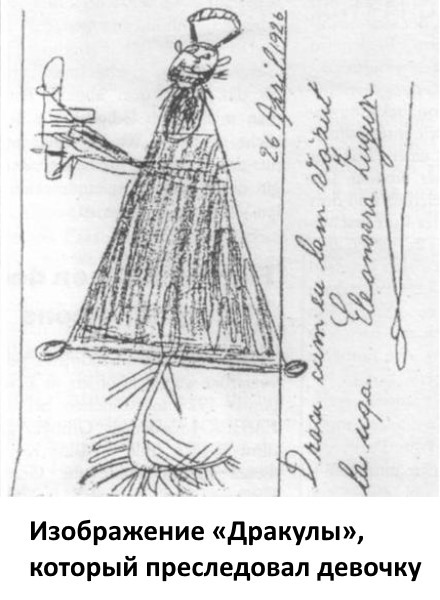 26 April 1926
Dracu cum eu lam văzut
la uşa. Eleonora Zugun
Изображение «Дракулы»,
который преследовал девочку